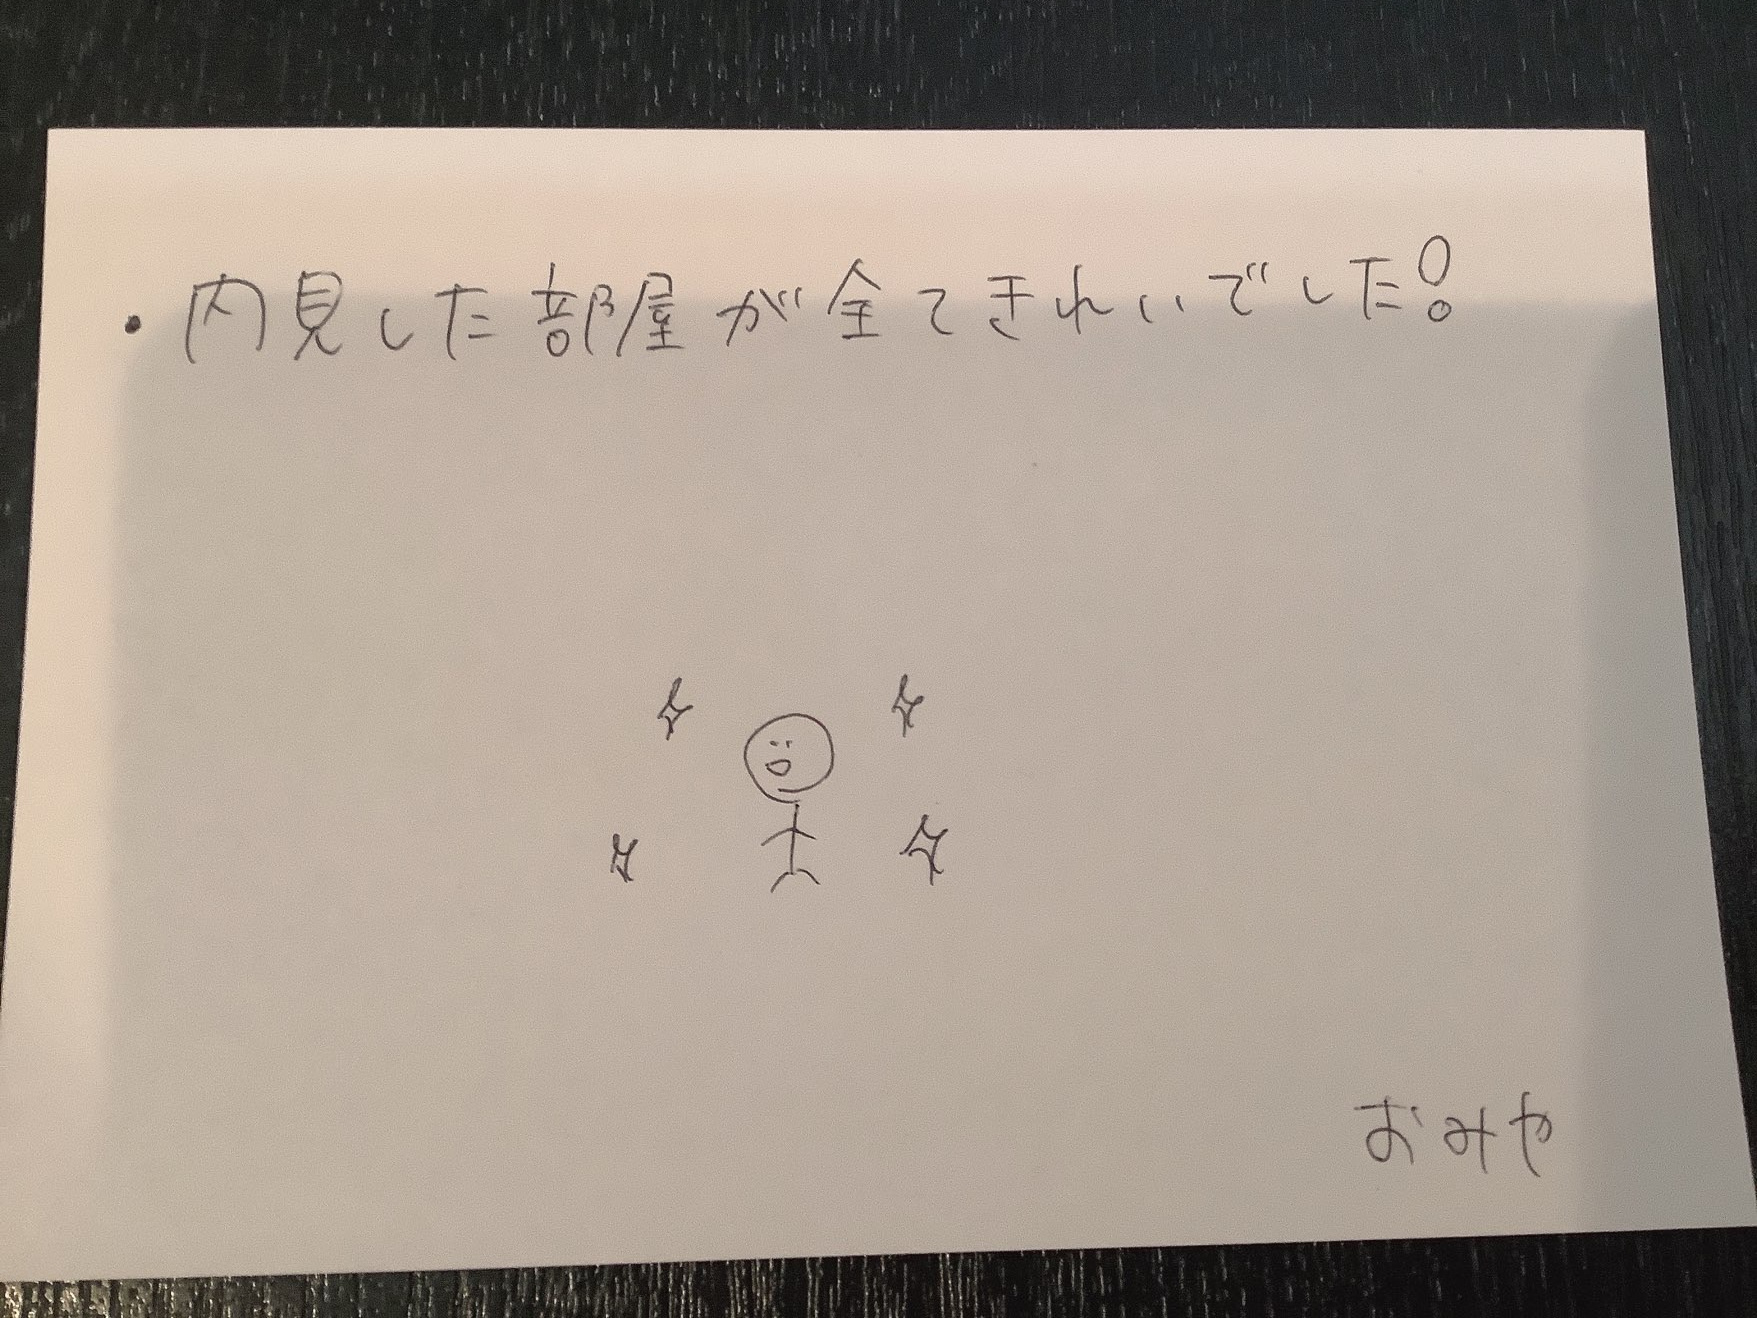 ・内見した部屋が全てきれいでした!
おみや